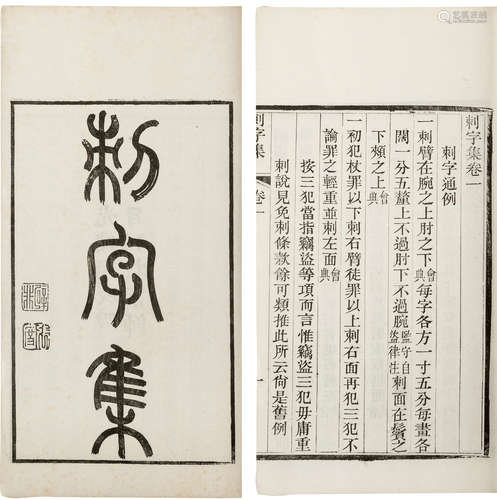 刺字集
刺字集卷一
刺字通例
一刺臂在腕之上肘之下會典每字各方一寸五分每畫各
闊一分五釐上不過肘下不過腕監守自盜律注刺面在鬢之
下頰之上會典
一初犯杖罪以下刺右臂徒罪以上刺右面再犯三犯不
論罪之輕重並刺左面會典
按三犯當指竊盜等項而言惟竊盜三犯毋庸重
刺說見免刺條款餘可類推此所云尙是舊例
刺字集
卷一
一